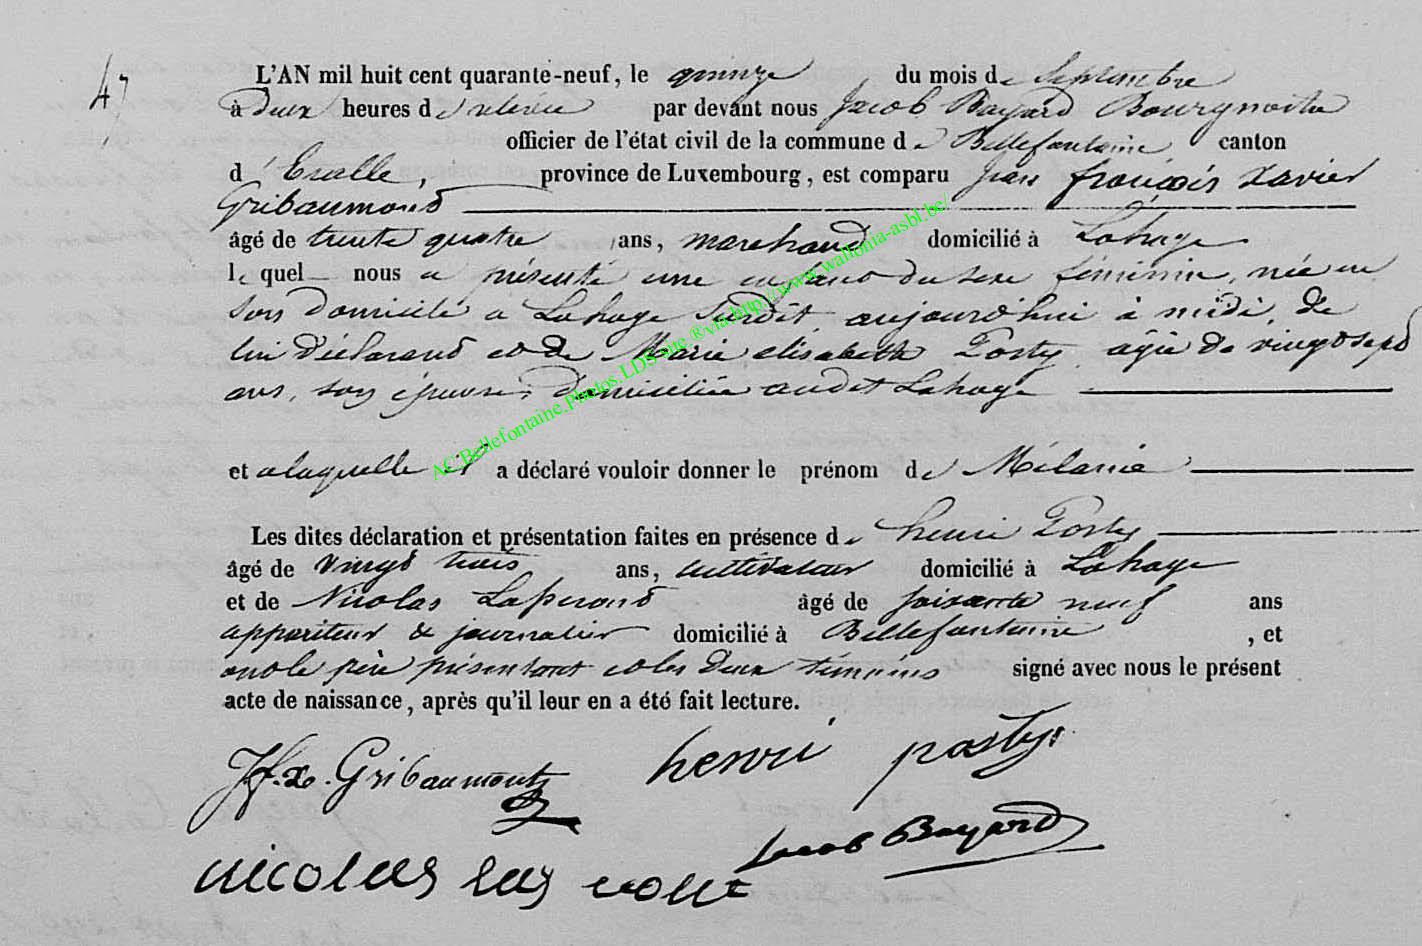 47
L'AN mil huit cent quarante-neuf, le quinze du mois de Septembre
à Deux heures de relevée par devant nous Jacob Bayard Bourgmestre
officier de l'état civil de la commune de Bellefontaine canton
d'Etalle, province de Luxembourg, est comparu Jean françois Xavier
Gribaumond
âgé de trente quatre ans, marchand domicilié à Lahage
lequel nous a présenté une enfant du sexe féminin, née en
son domicile a Lahage Susdit, aujourd'hui à midi, de
lui déclarand et de Marie elisabeth Posty agée de vingt sept
ans, son épouse, domiciliée audit Lahage
et a laquelle il a déclaré vouloir donner le prénom de Mélanie
Les dites déclaration et présentation faites en présence de henri Posty
âgé de vingt trois ans, cultivateur domicilié à Lahage
et de Nicolas âgé de soixante neuf ans
appariteur & journalier domicilié à Bellefontaine , et
ont le père présentant et les deux témoins signé avec nous le présent
acte de naissance, après qu'il leur en a été fait lecture.
J.f.x. Gribaumont henri posty
Jacob Bayard
nicolas
AC.Bellefontaine.Photos.LDS-site.®via.http://www.wallonia-asbl.be/